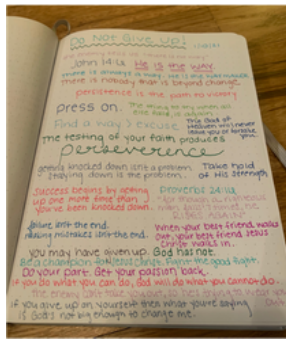 Do Not Give Up!
John 14:6 He is the way.
There is always a way. He is the way maker.
There is nobody that is beyond change.
persistence is the path to victory
press on. The thing to try when all
else fails, is again.
Find a way > excuse The God of
Heaven will never
leave you or forsake
you.
The testing of your faith produces
perseverence
getting knocked down isn't a problem. Take hold
staying down is the problem. of His strength
Success begins by getting
up one more time than
you've been knocked down.
Proverbs 24:16
RISES AGAIN"
failure isn't the end.
making mistakes isn't the end.
When your best friend walks
out, your best friend Jesus
Christ walks in.
you may have given up. God has not.
Be a champion for Jesus Christ. Fight the good fight.
Do your part. Get your passion back.
if you do what you can do, God will do what you cannot do.
The enemy can't take you out, so he's trying to wear you
out
if you give up on yourself then what you're saying
is God's not big enough to change me.